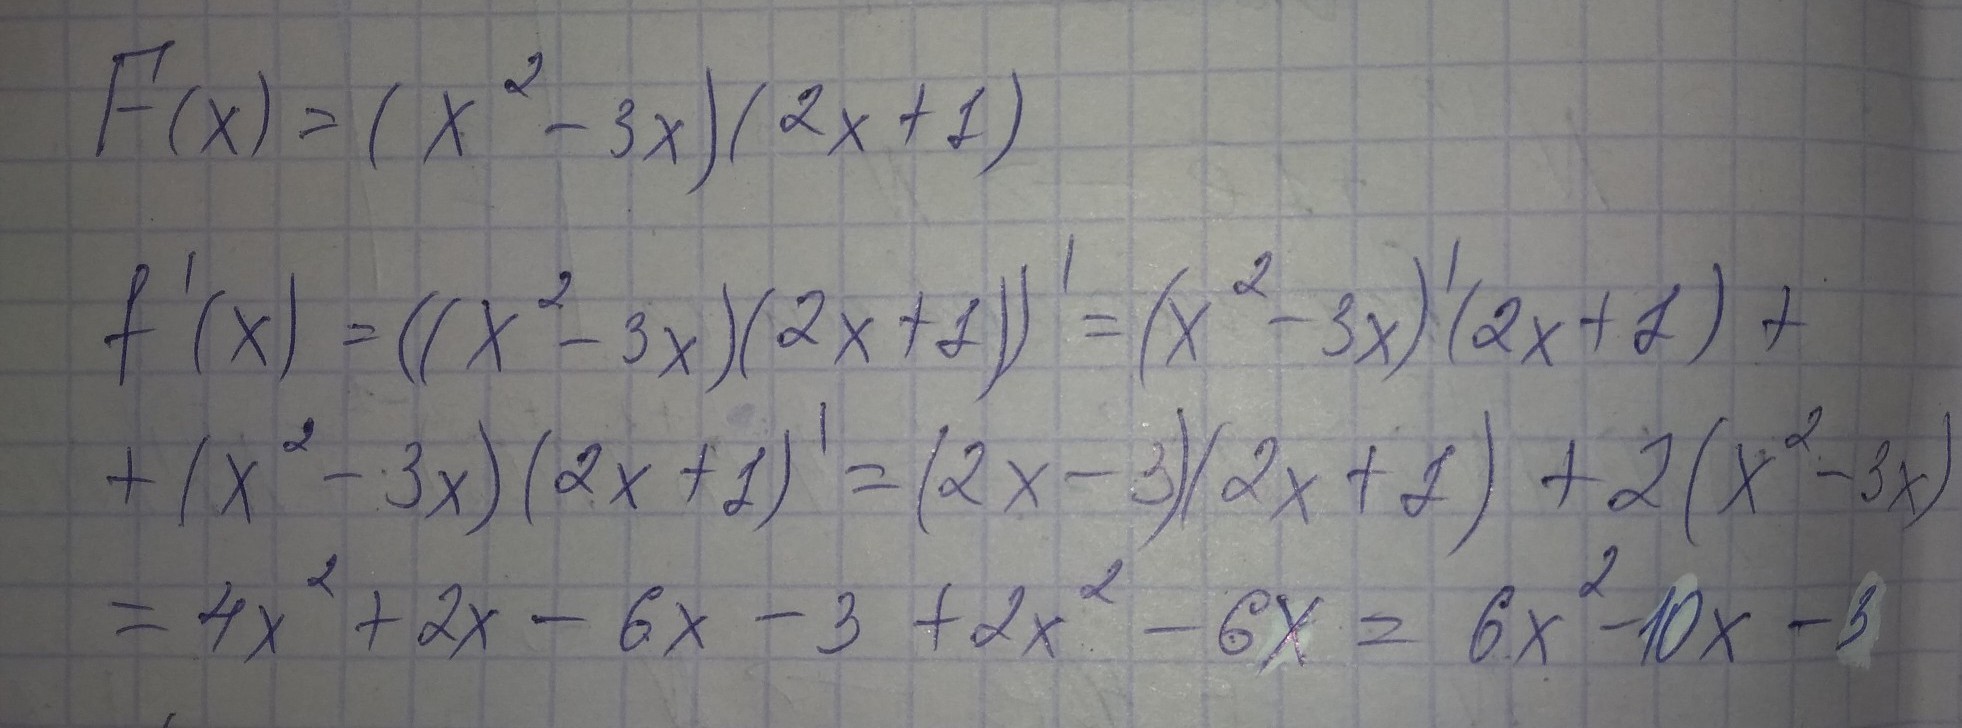 F(x) = (x² - 3x)(2x + 1)
f'(x) = ((x² - 3x)(2x + 1))' = (x² - 3x)'(2x + 1) +
+ (x² - 3x)(2x + 1)' = (2x - 3)(2x + 1) + 2(x² - 3x)
= 4x² + 2x - 6x - 3 + 2x² - 6x = 6x² - 10x - 3